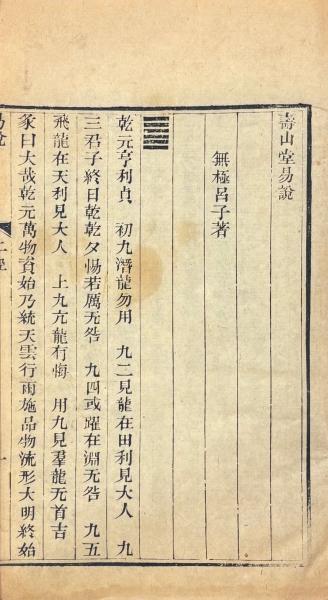 壽山堂易說
無極呂子著
䷀
乾元亨利貞　初九潛龍勿用　九二見龍在田利見大人　九
三君子終日乾乾夕惕若厲无咎　九四或躍在淵无咎　九五
飛龍在天利見大人　上九亢龍有悔　用九見羣龍无首吉
彖曰大哉乾元萬物資始乃統天雲行雨施品物流形大明終始